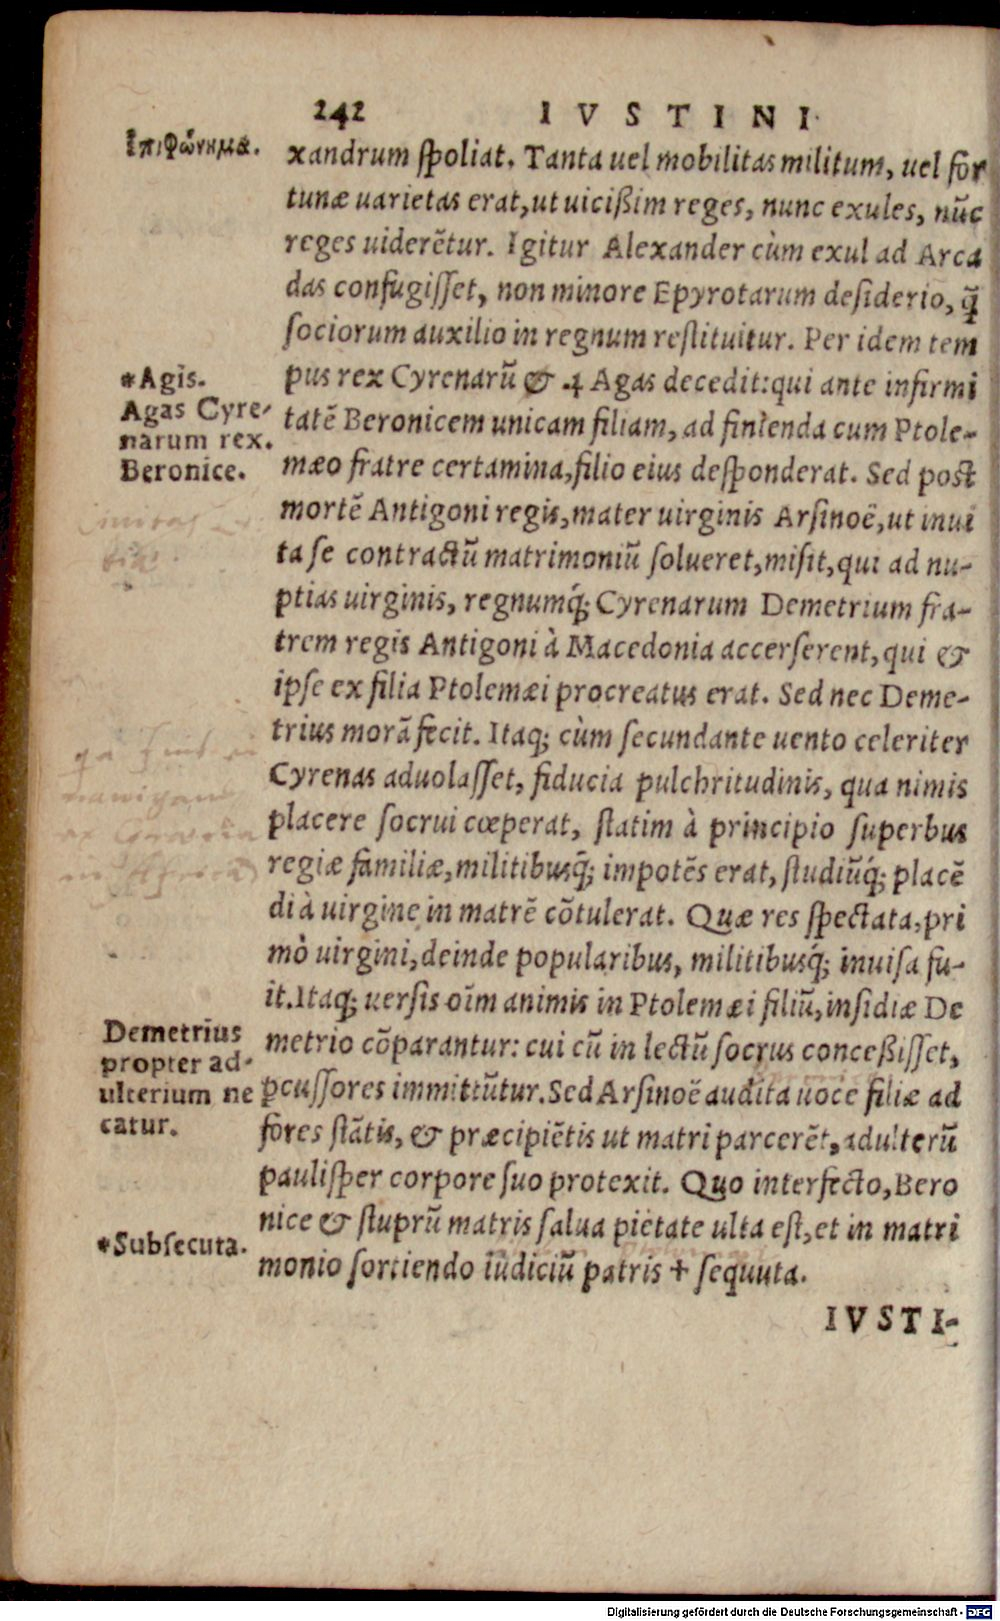 242 IVSTINI
Ἐπιφώνημα.
xandrum ſpoliat. Tanta uel mobilitas militum, uel for
tunæ uarietas erat, ut uicißim reges, nunc exules, nũc
reges uiderẽtur. Igitur Alexander cùm exul ad Arca
das confugiſſet, non minore Epyrotarum deſiderio, q̃
ſociorum auxilio in regnum reſtituitur. Per idem tem
*Agis.
Agas Cyre-
narum rex.
Beronice.
pus rex Cyrenarũ & ⁜ Agas decedit: qui ante infirmi
tatẽ Beronicem unicam filiam, ad finienda cum Ptole-
mæo fratre certamina, filio eius deſponderat. Sed poſt
mortẽ Antigoni regis, mater uirginis Arſinoë, ut inui
ta ſe contractũ matrimoniũ ſolueret, miſit, qui ad nu-
ptias uirginis, regnumq́; Cyrenarum Demetrium fra-
trem regis Antigoni à Macedonia accerſerent, qui &
ipſe ex filia Ptolemæi procreatus erat. Sed nec Deme-
trius morã fecit. Itaq; cùm ſecundante uento celeriter
Cyrenas aduolaſſet, fiducia pulchritudinis, qua nimis
placere ſocrui cœperat, ſtatim à principio ſuperbus
regiæ familiæ, militibusq́; impotẽs erat, ſtudiũq́; placẽ
di à uirgine in matrẽ cõtulerat. Quæ res ſpectata, pri
mò uirgini, deinde popularibus, militibusq́; inuiſa fu-
it. Itaq; uerſis oĩm animis in Ptolemæi filiũ, inſidiæ De
Demetrius
propter ad-
ulterium ne
catur.
metrio cõparantur: cui cũ in lectũ ſocrus conceßiſſet,
p̱cuſſores immittũtur. Sed Arſinoë audita uoce filiæ ad
fores ſtãtis, & præcipiẽtis ut matri parcerẽt, adulterũ
pauliſper corpore ſuo protexit. Quo interfecto, Bero
nice & ſtuprũ matris ſalua pietate ulta eſt, et in matri
*Subſecuta.
monio ſortiendo iudiciũ patris + ſequuta.
IVSTI-
Digitalisierung gefördert durch die Deutsche Forschungsgemeinschaft - DFG